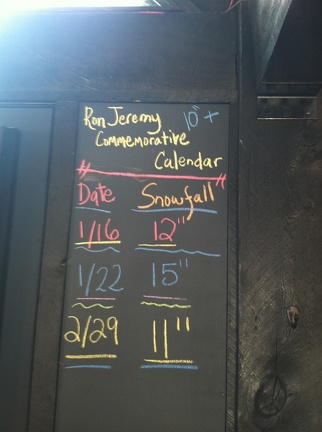 Ron Jeremy 10" +
Commemorative
Calendar
Date Snowfall
1/16 12"
1/22 15"
2/29 11"